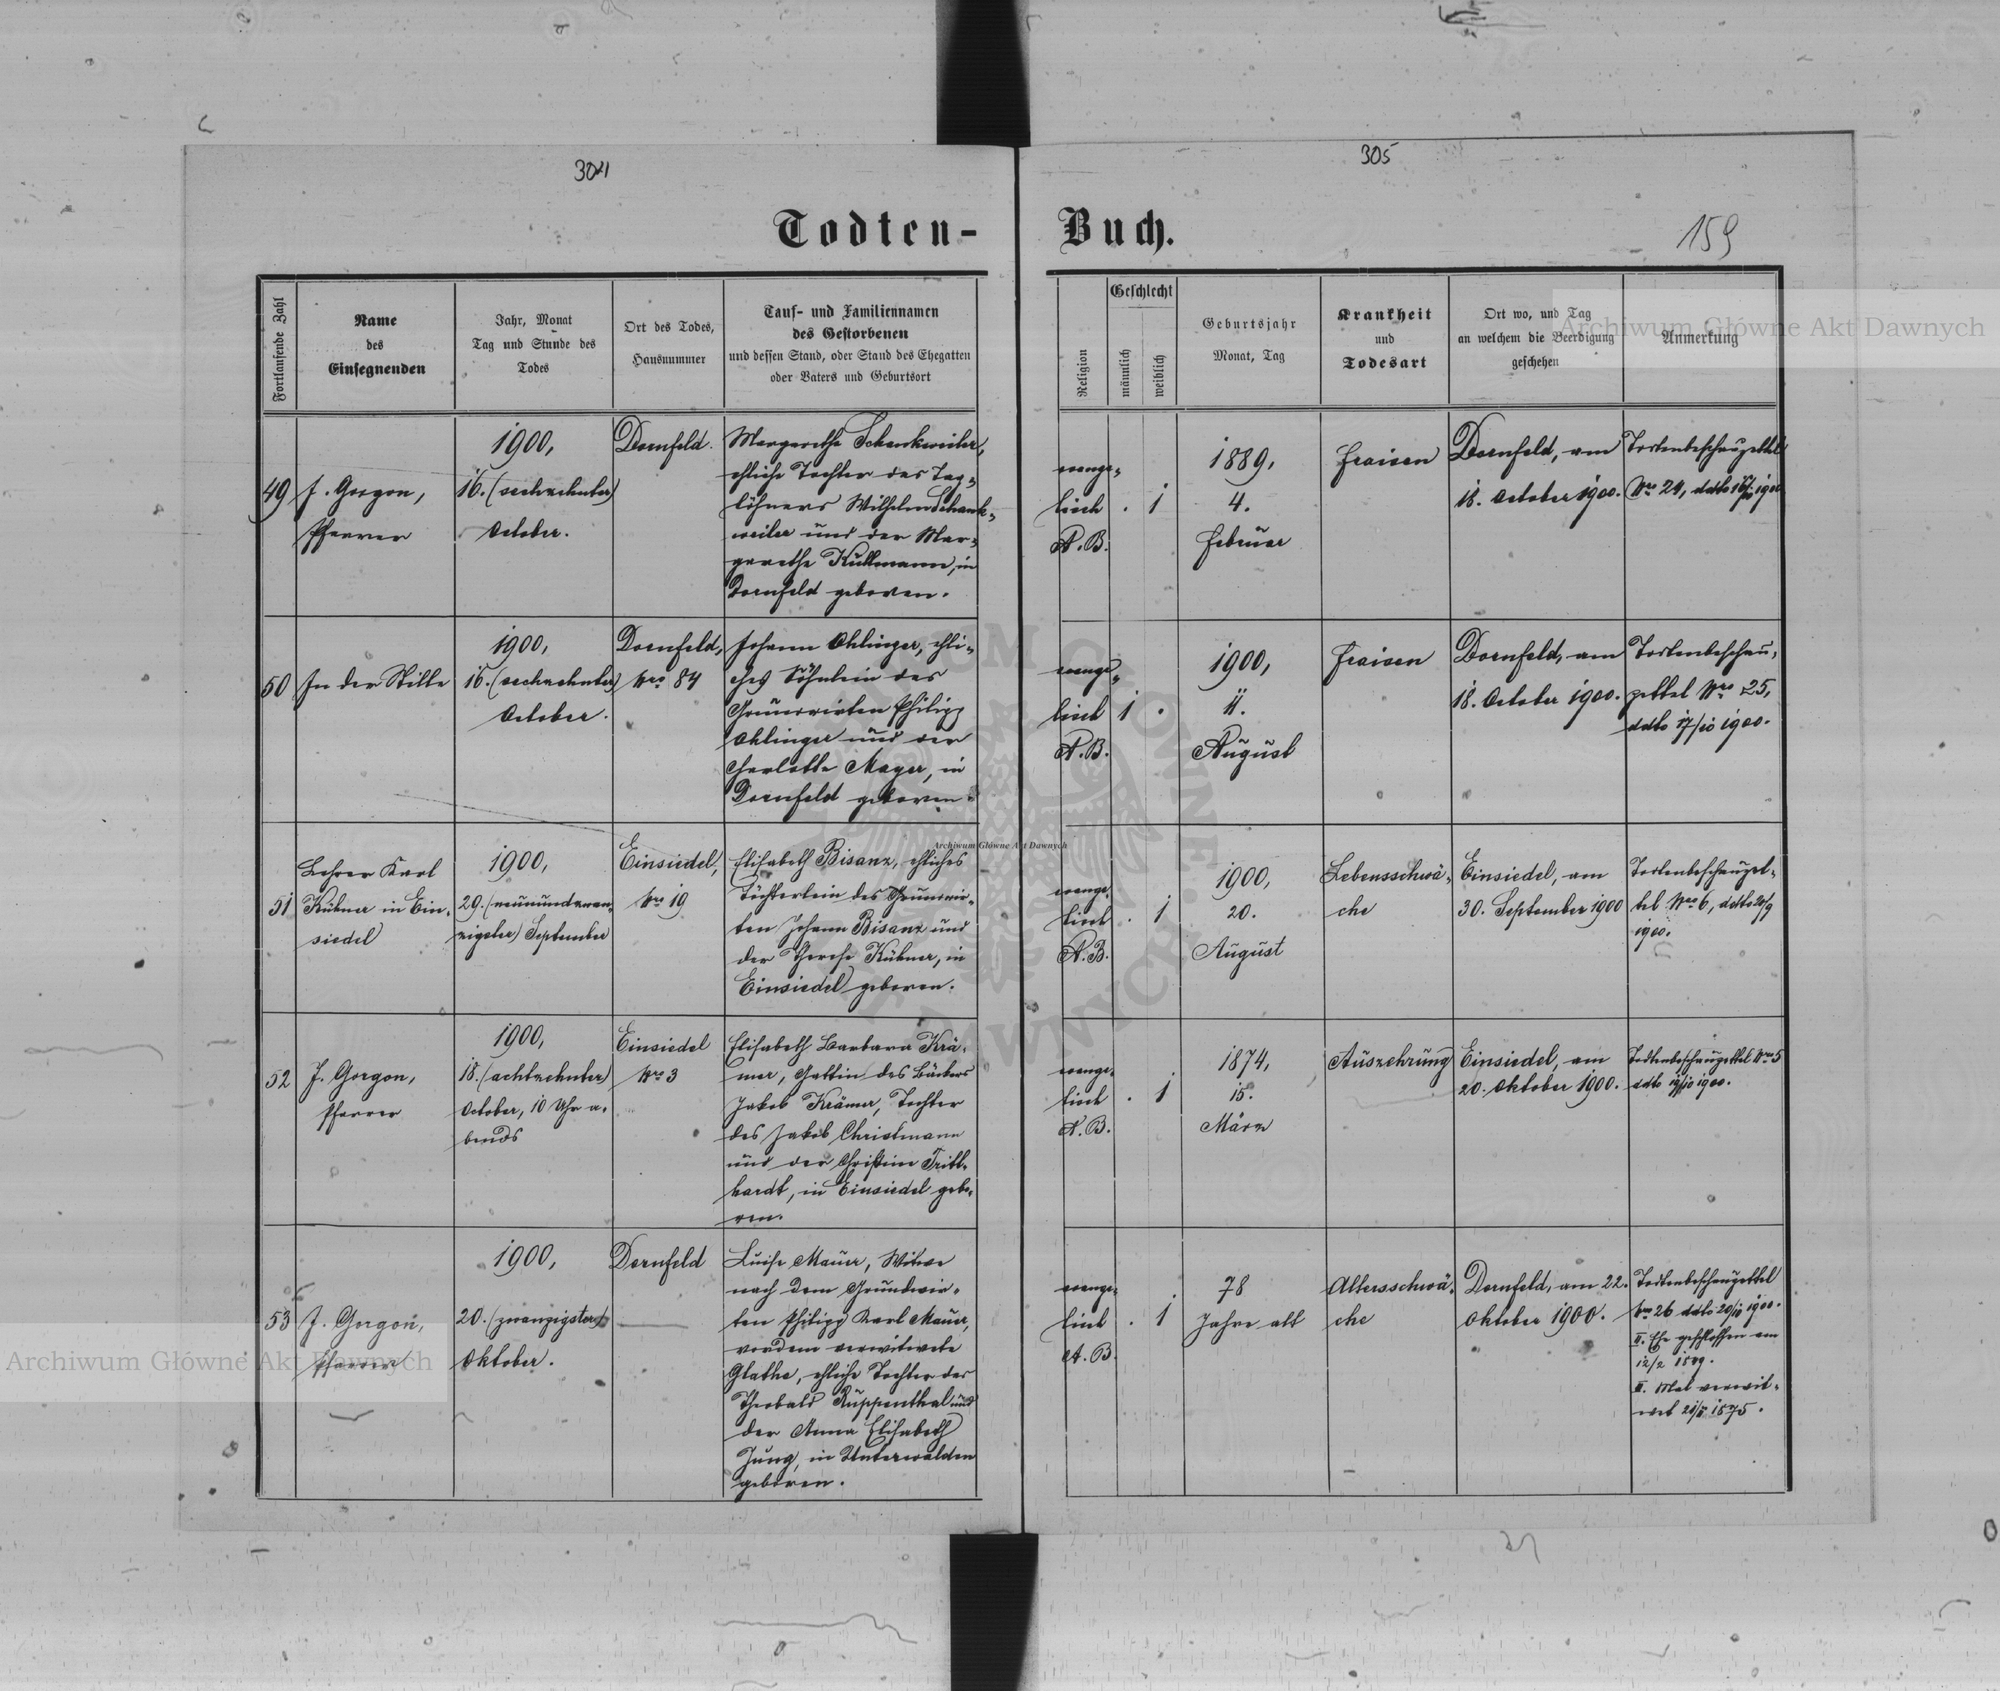 304
305
159
Todten-Buch.
Fortlaufende Zahl
Name
des
Einsegnenden
Jahr, Monat
Tag und Stunde des
Todes
Ort des Todes,
Hausnummer
Tauf- und Familiennamen
des Gestorbenen
und dessen Stand, oder Stand des Ehegatten
oder Vaters und Geburtsort
Religion
Geschlecht
männlich
weiblich
Geburtsjahr
Monat, Tag
Krankheit
und
Todesart
Ort wo, und Tag
an welchem die Beerdigung
geschehen
Anmerkung
49
J. Gorgon,
Pfarrer
1900,
16. (sechzehnter)
October.
Dornfeld.
Margarethe Schankweiler,
ehliche Tochter des Tag-
löhners Wilhelm Schank-
weiler und der Mar-
garethe Kullmann, in
Dornfeld geboren.
evange-
lisch
A. B.
. 1
1889,
4.
Februar
Fraisen
Dornfeld, am
18. October 1900.
Todtenbeschauzettel
Nro 24, ddto 1900
50
In der Stille
1900,
16. (sechzehnter)
October.
Dornfeld,
Nro 84
Johann Ohlinger, ehli-
ches Söhnlein des
Grundwirten Philipp
Ohlinger und der
Charlotte Mayer, in
Dornfeld geboren.
evange-
lisch
A. B.
1 .
1900,
11.
August
Fraisen
Dornfeld, am
18. October 1900.
Todtenbeschau-
zettel Nro 25,
ddto 17/10 1900.
51
Lehrer Karl
Kübner in Ein-
siedel
1900,
29. (neunundzwan-
zigster) September
Einsiedel,
Nro 19
Elisabeth Bisanz, ehliches
Töchterlein des Grundwir-
ten Johann Bisanz und
der Therese Kübner, in
Einsiedel geboren.
evange-
lisch
A. B.
. 1
1900,
20.
August
Lebensschwä-
che
Einsiedel, am
30. September 1900
Todtenbeschauzet-
tel Nro 6, ddto 29/9
1900.
52
J. Gorgon,
Pfarrer
1900,
18. (achtzehnter)
October, 10 Uhr a-
bends
Einsiedel
Nro 3
Elisabeth Barbara Krä-
mer, Gattin des Bäckers
Jakob Krämer, Tochter
des Jakob Christmann
und der Christine Tritt-
hardt, in Einsiedel gebo-
ren.
evange-
lisch
A. B.
. 1
1874,
15.
März
Auszehrung
Einsiedel, am
20. Oktober 1900.
Todtenbeschauzettel Nro 5
ddto 19/10 1900.
53
J. Gorgon,
Pfarrer
1900,
20. (zwanzigster)
Oktober.
Dornfeld
Luise Maurer, Witwe
nach dem Grundwir-
ten Philipp Karl Maurer,
vordem verwitwete
Glathe, ehliche Tochter des
Theobald Ruppenthal und
der Anna Elisabeth
Jung, in Unterwalden
geboren.
evange-
lisch
A. B.
. 1
78
Jahre alt
Altersschwä-
che
Dornfeld, am 22.
Oktober 1900.
Todtenbeschauzettel
Nro 26 ddto 20/10 1900.
II. Ehe geschlossen am
12/2
II. Mal verwit-
wet 1875.
Archiwum Główne Akt Dawnych
Archiwum Główne Akt Dawnych
Archiwum Główne Akt Dawnych